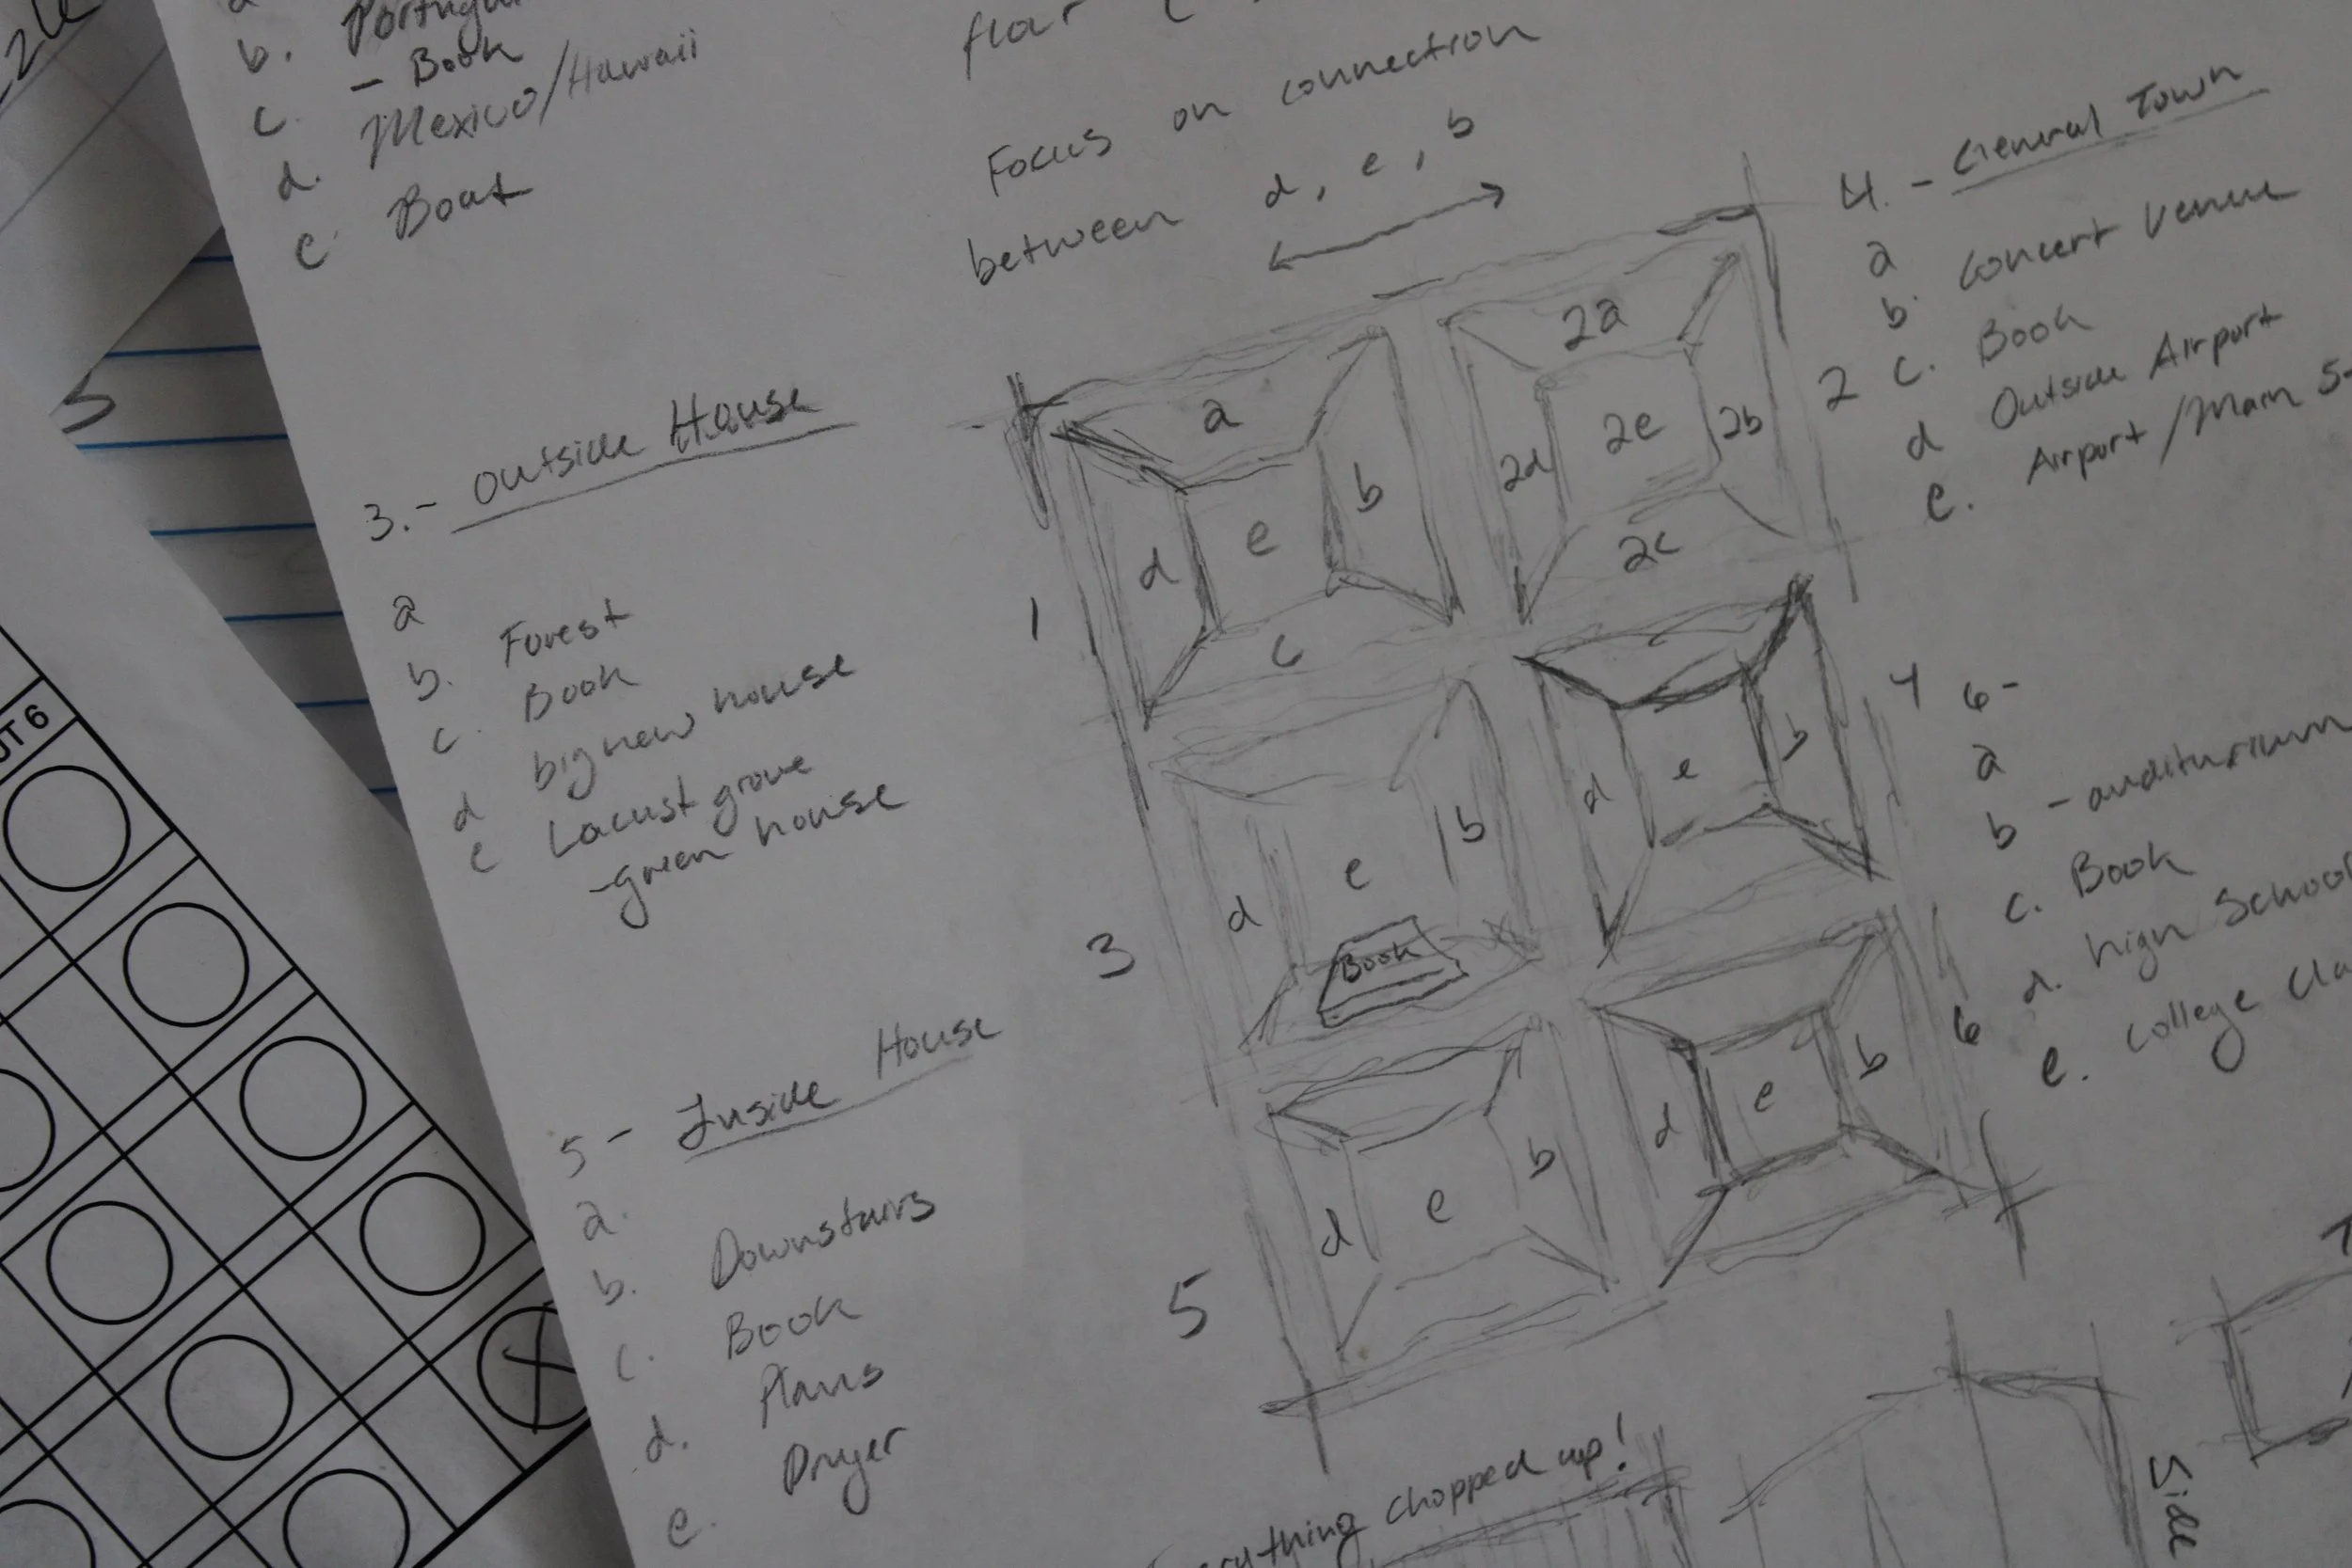 b. Portugal
- Book
c.
d. Mexico/Hawaii
e. Boat
Focus on connection
between d, e, b
3.- Outside House
a
b. Forest
c. Book
d big new house
e Locust grove
-green house
5 - Inside House
a.
b. Downstairs
c. Book
d. Plans
e.
4. - General Town
a
b. Concert Venue
c. Book
d Outside Airport
e. Airport/Main
6-
a
b - auditorium
c. Book
d. high School
e. college
1
a
d e b
c
2
2a
2d 2e 2b
2c
3
d e b
Book
4
d e b
5
d e b
6
d e b
chopped up!
Side
UT 6
5